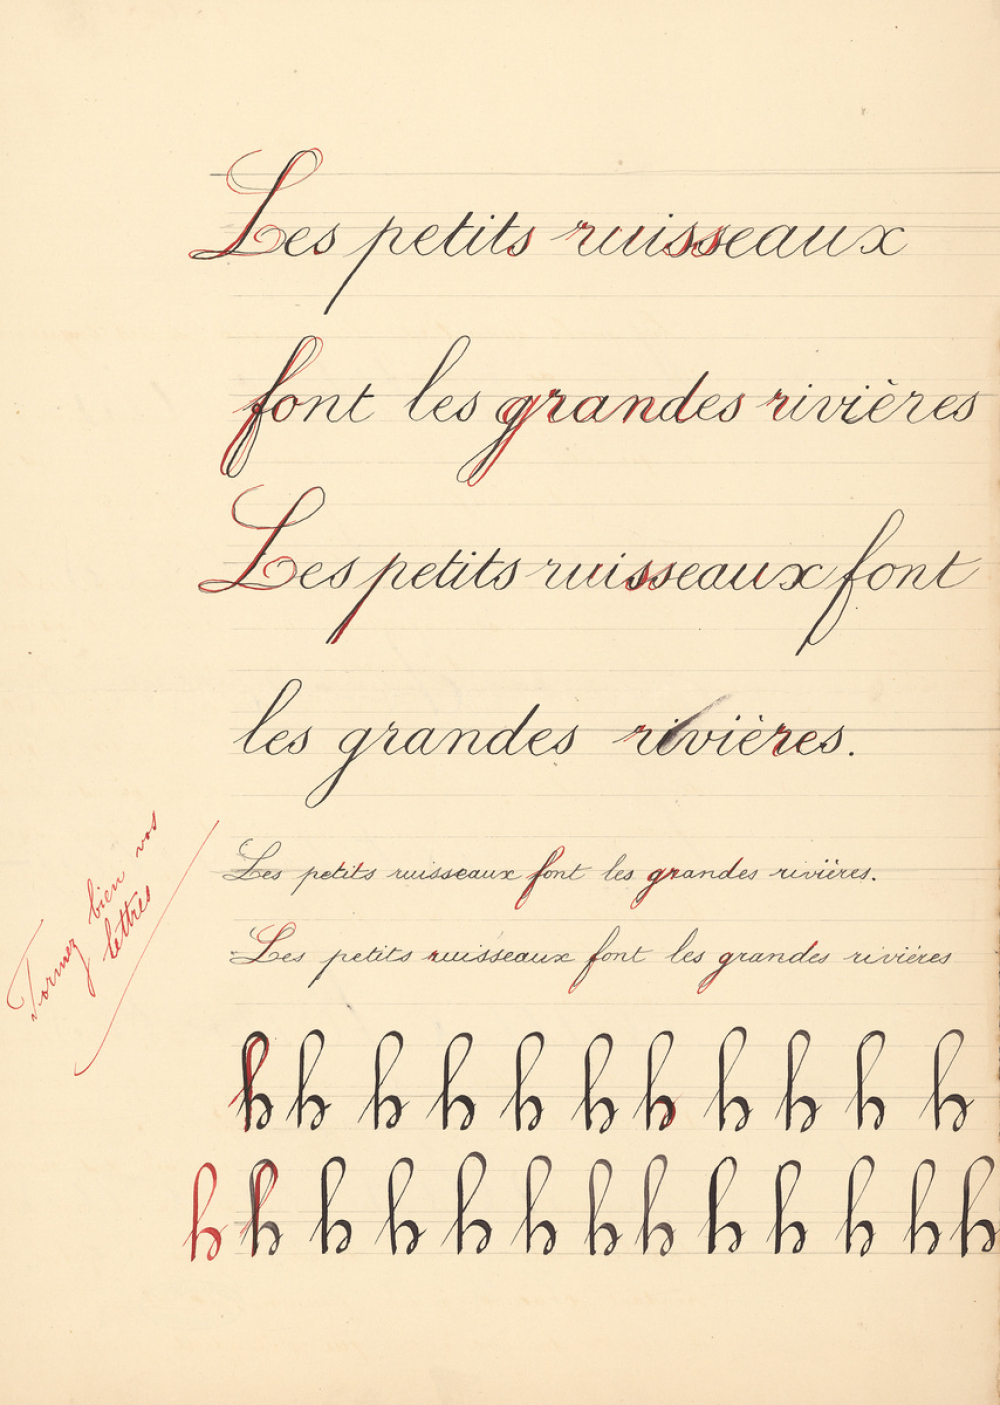 Les petits ruisseaux
font les grandes rivières
Les petits ruisseaux font
les grandes rivières.
Les petits ruisseaux font les grandes rivières.
Les petits ruisseaux font les grandes rivières
Formez bien vos
lettres
h h h h h h h h h h h
h h h h h h h h h h h h h